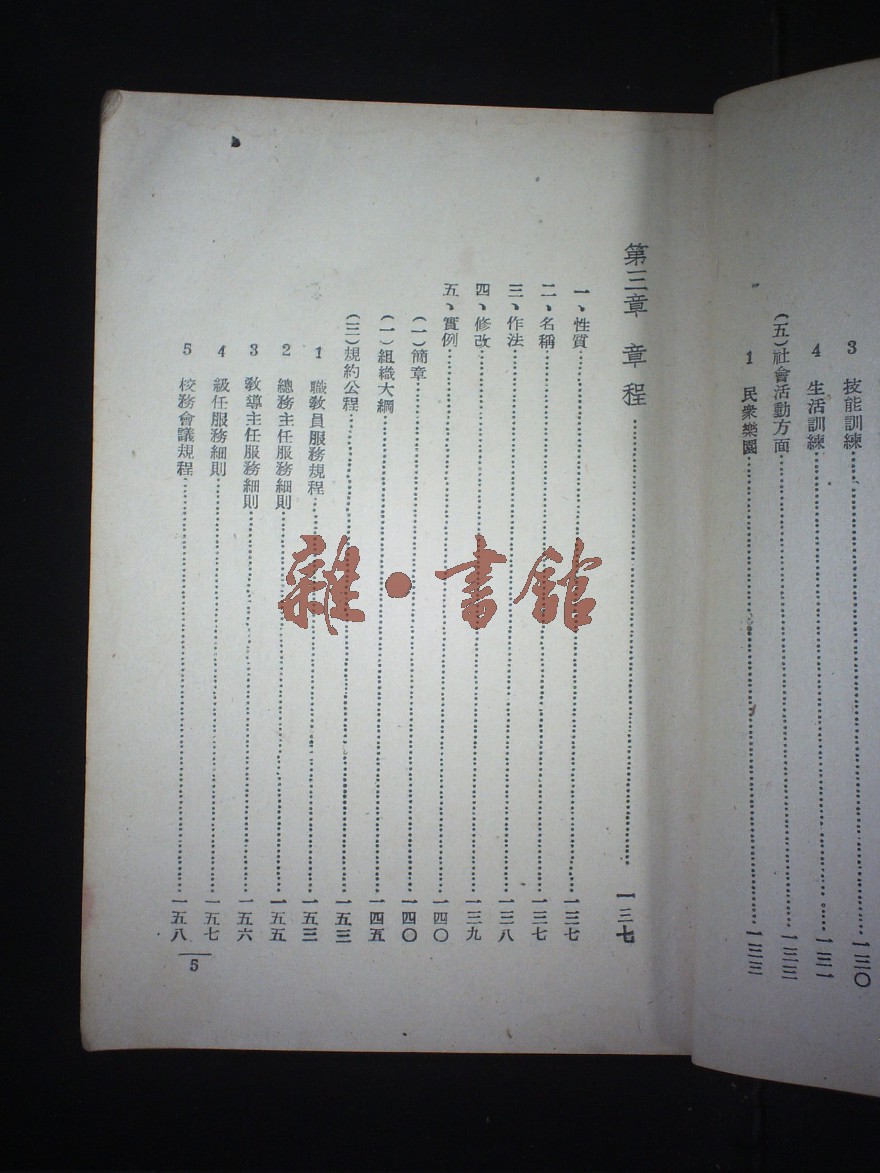 3 技能訓練……一三〇
4 生活訓練……一三一
(五)社會活動方面……一三三
1 民衆樂園……一三三
第三章 章程……一三七
一、性質……一三七
二、名稱……一三七
三、作法……一三八
四、修改……一三九
五、實例……一四〇
(一)簡章……一四〇
(一)組織大綱……一四五
(三)規約公程……一五三
1 職教員服務規程……一五三
2 總務主任服務細則……一五五
3 教導主任服務細則……一五六
4 級任服務細則……一五七
5 校務會議規程……一五八
5
雜·書館